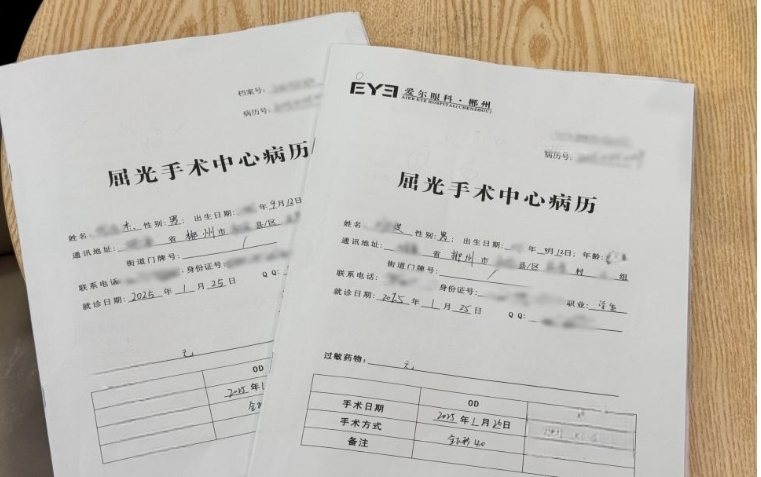 档案号:
病历号:
屈光手术中心病历
姓名: 杰 性别: 男; 出生日期: 年 9月12日
通讯地址: 省 郴州 市 县/区
街道门牌号: /
联系电话 ;身份证号:
就诊日期: 2025 年 1 月 25 日 QQ:
无
OD
2025 年 1
全飞秒
EYE 爱尔眼科·郴州
AIER EYE HOSPITAL(CHENZHOU)
病历号:
屈光手术中心病历
姓名: 波 性别: 男; 出生日期: 年 9月12日; 年龄:
通讯地址: 省 郴州 市 县/区 村 组
街道门牌号: /
联系电话: 身份证号: 职业: 学生
就诊日期: 2025 年 1 月 25 日 QQ:
过敏药物: 无
OD
手术日期 2025 年 1 月 26 日
手术方式 全飞秒 4.0
备注